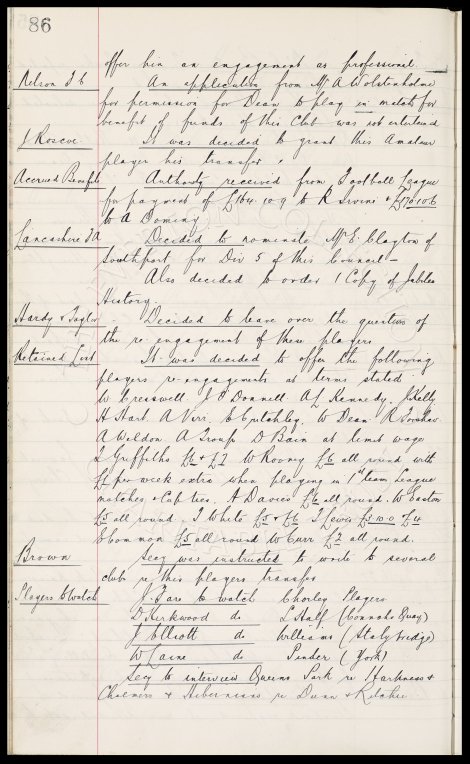 86
offer him an engagement as professional.
Nelson F C An application from Mr A Wolstenholme
for permission for Dean to play in match for
benefit of funds of this Club was not entertained
J Roscoe It was decided to grant this Amateur
player his transfer.
Accrued Benefits Authority received from Football League
for payment of £164.10.9 to R Irvine &
to A Dominy
Lancashire F A Decided to nominate Mr E Clayton of
Southport for Div 5 of this Council
Also decided to order 1 Copy of Jubilee
History.
Hardy & Taylor Decided to leave over the question of
the re-engagement of these players
Retained List It was decided to offer the following
players re-engagements at terms stated
W Cresswell J O'Donnell A L Kennedy. J Kelly
H Hart A Virr. E Critchley. W Dean R Forshaw
A Weldon A Troup D Bain at limit wage
T Griffiths £6 & £7 W Rooney £6 all round with
£1 per week extra when playing in 1st team League
matches & Cup ties. A Davies £6 all round. W Easton
£5 all round. T White £5 & £6 T Lewis £3-10-0 & £4
E Common £5 all round W Curr £7 all round.
Brown Secy was instructed to write to several
clubs re this players transfer
Players to Watch J Fare to watch Chorley Players
D Kirkwood do L Half (Connahs Quay)
J Elliott do Williams (Stalybridge)
W Laine do Pinder (York)
Secy to interview Queens Park re Harkness &
Chalmers & Hibernians re Dunn &